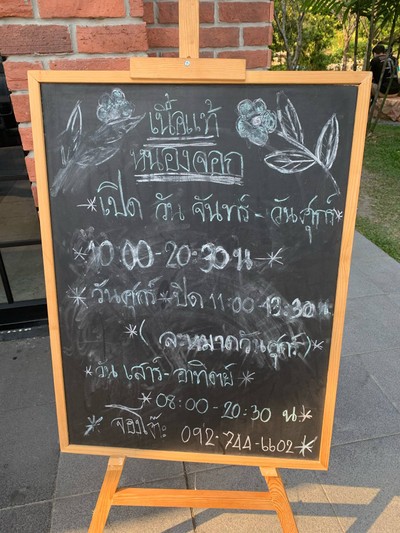 เนื้อแท้
หนองจอก
*เปิด วัน จันทร์ - วันศุกร์*
*10:00-20:30 น*
*วันศุกร์*ปิด 11:00-13:30 น
*( ละหมาดวันศุกร์)*
*วัน เสาร์-อาทิตย์*
*08:00-20:30 น*
*จองโต๊ะ 092-744-6602*